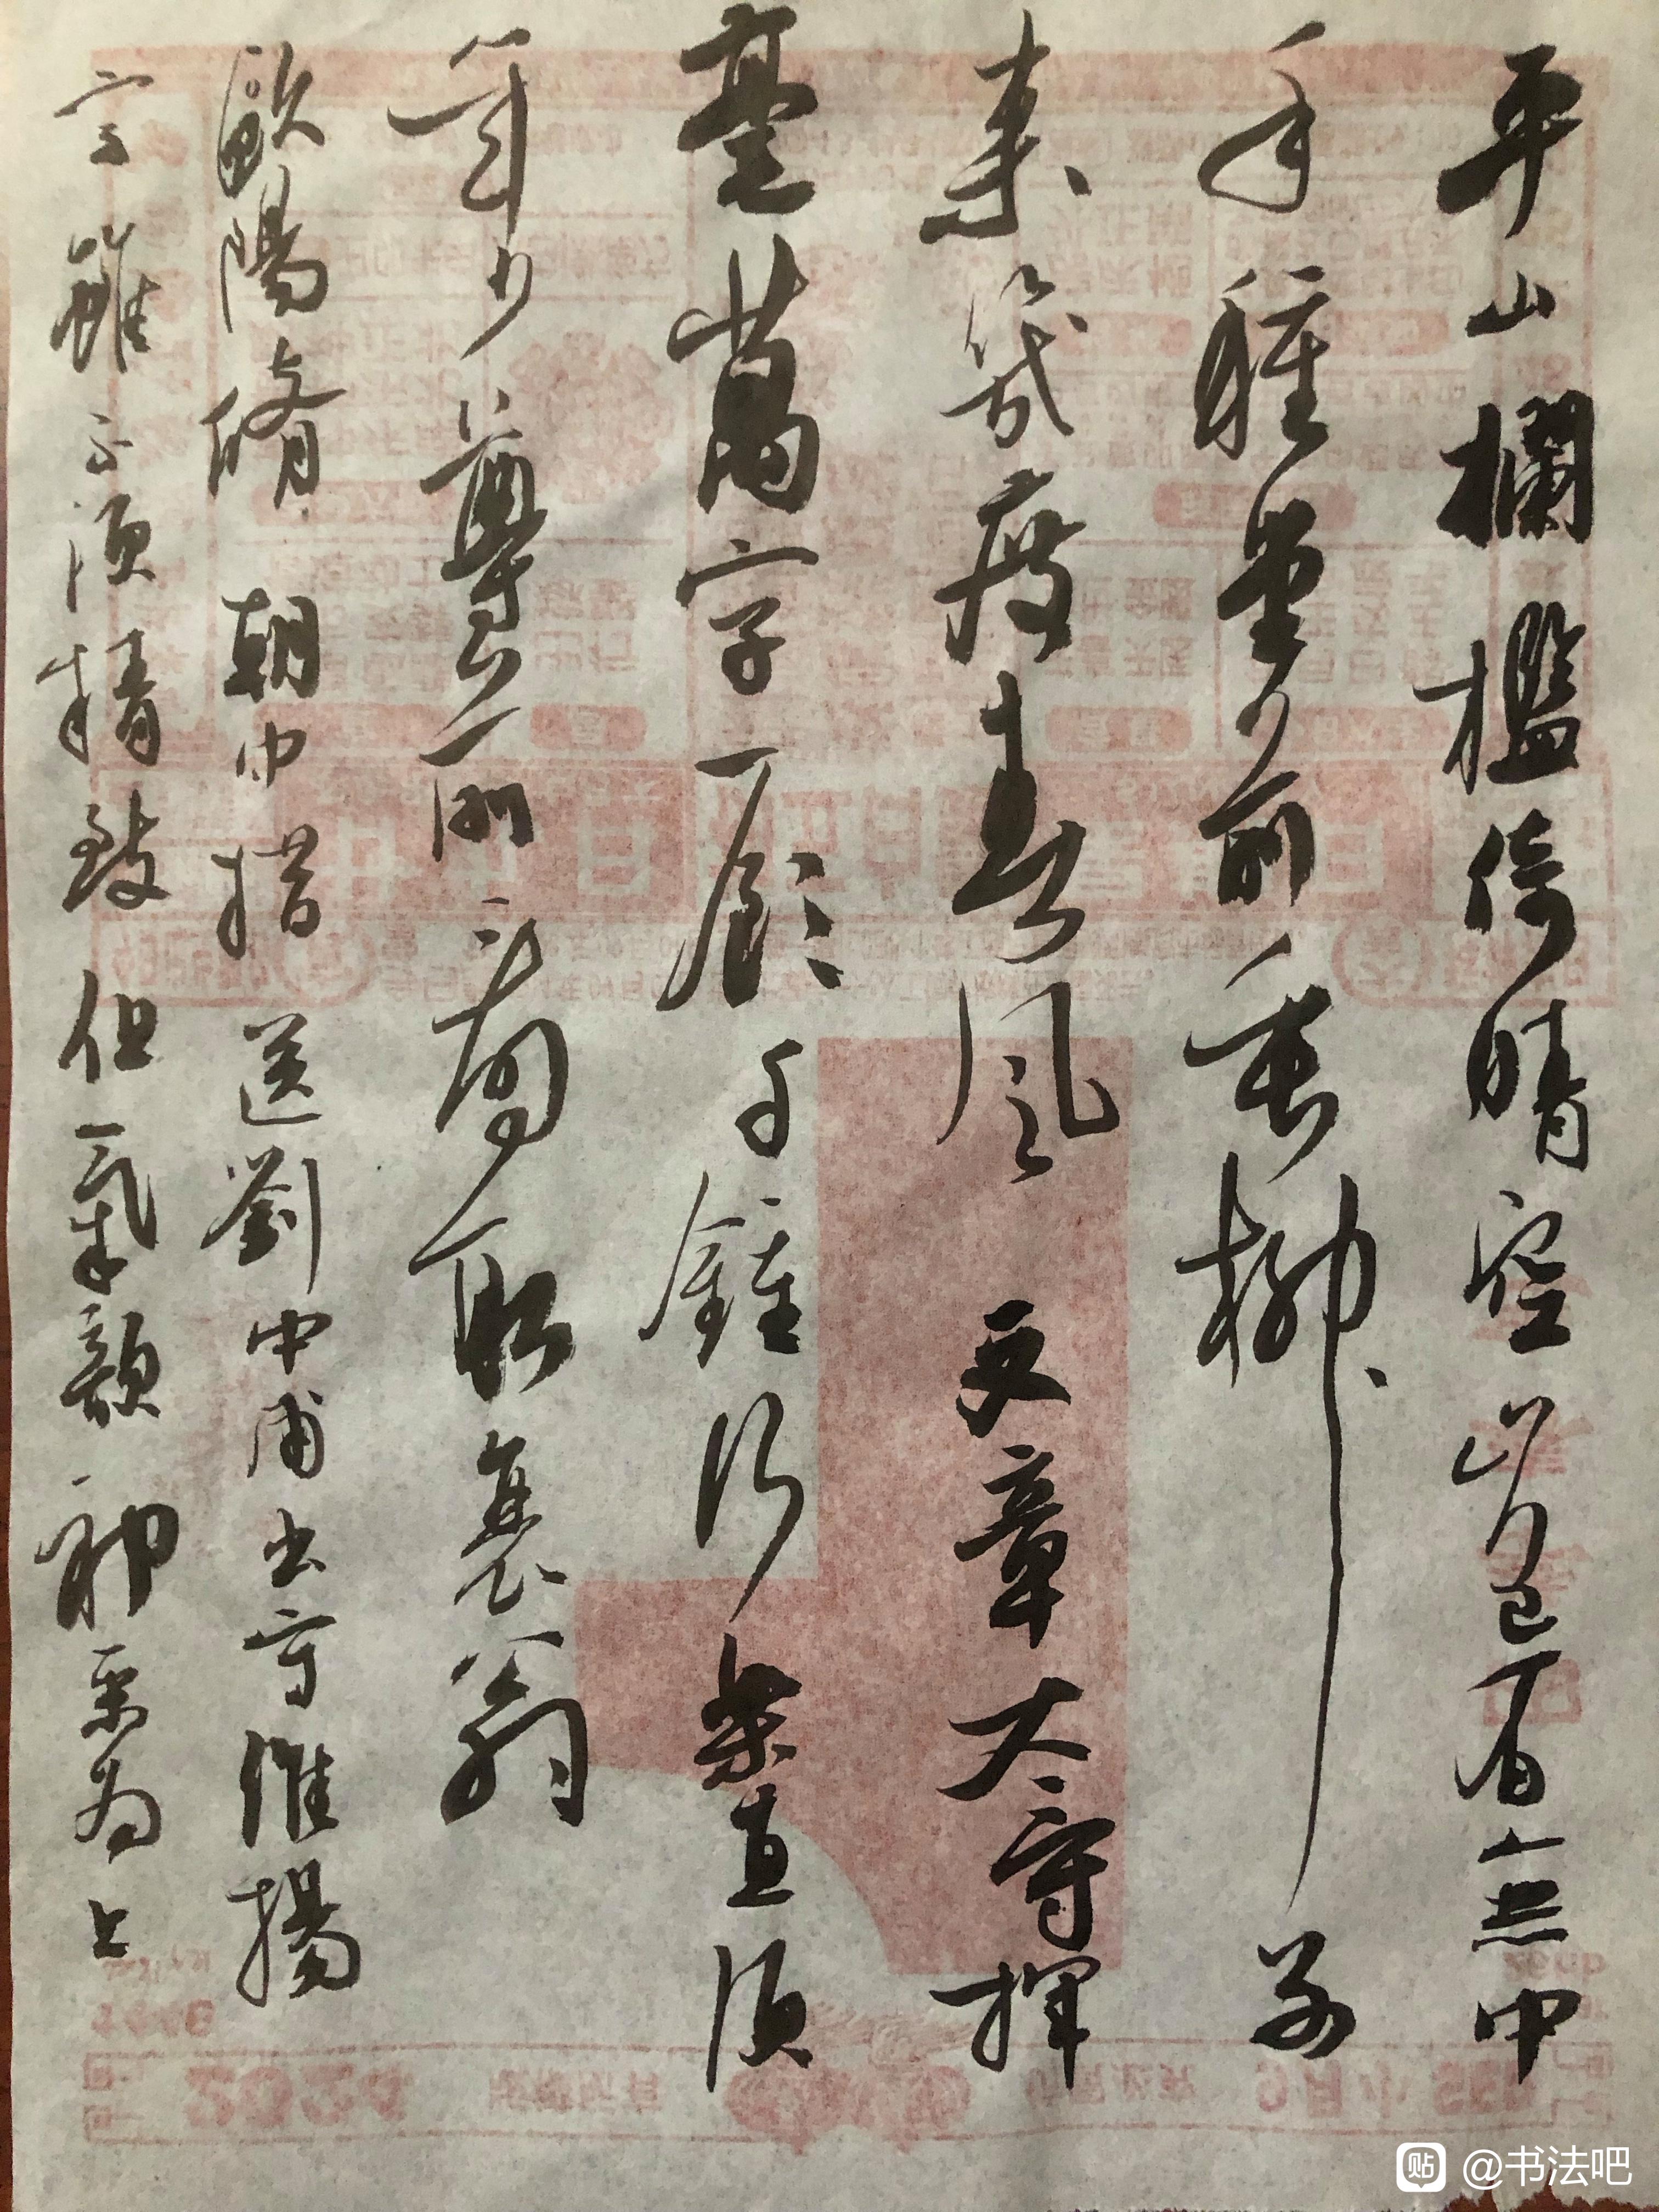 平山欄檻倚晴空山色有無中
手種堂前垂柳別
來幾度春風文章太守揮
毫萬字一飲千鍾行樂直須
年少尊前看取衰翁
歐陽脩 朝中措 送劉中甫出守維揚
字雖不須精致但氣韻神采為上
贴 @书法吧